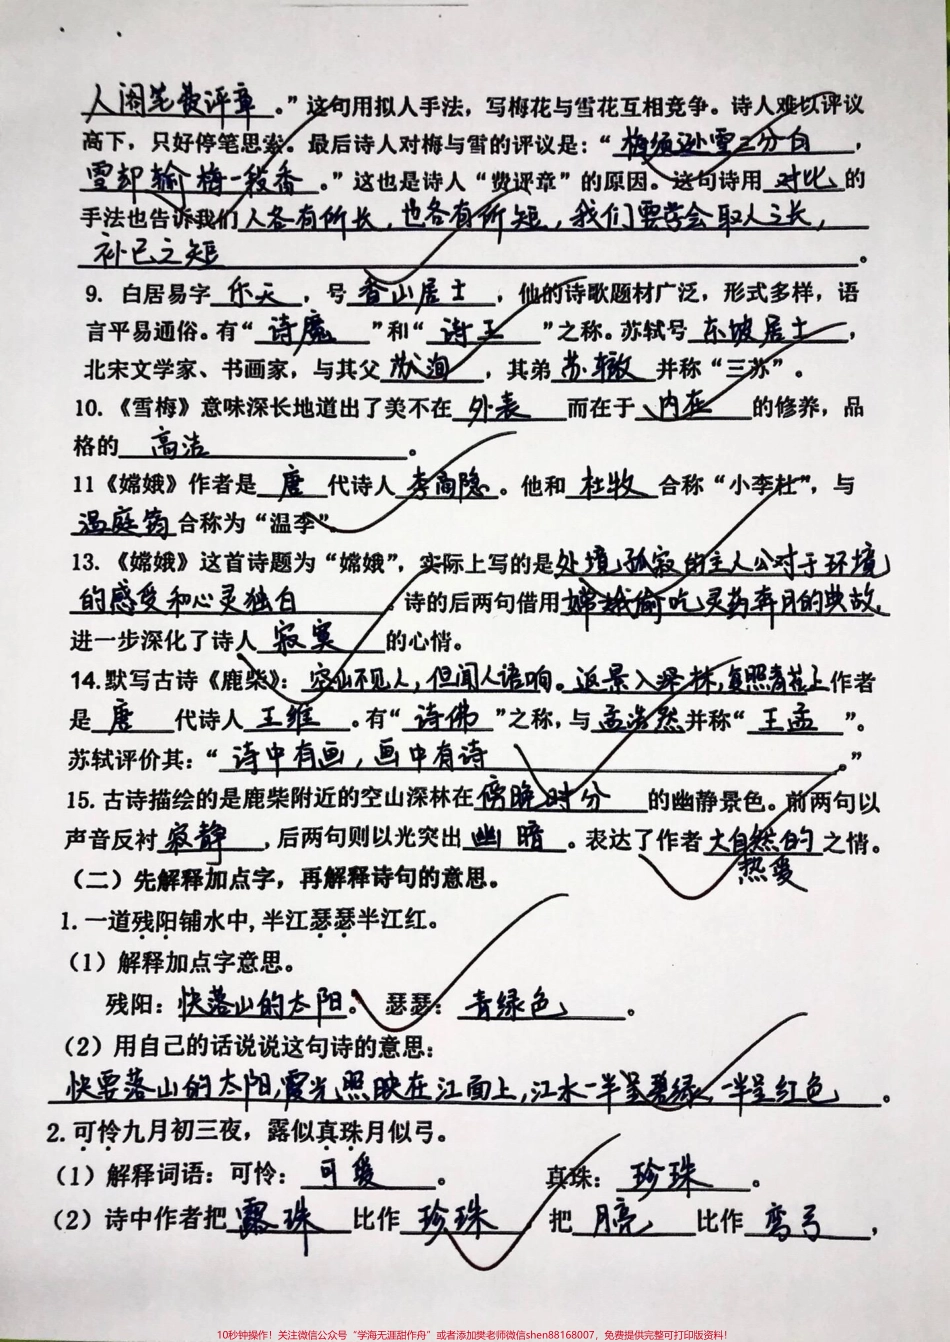 人阁笔费评章。”这句用拟人手法，写梅花与雪花互相竞争。诗人难以评议
高下，只好停笔思索。最后诗人对梅与雪的评议是：“梅须逊雪三分白，
雪却输梅一段香。”这也是诗人“费评章”的原因。这句诗用对比的
手法也告诉我们人各有所长，也各有所短，我们要学会取人之长，
补己之短。
9. 白居易字乐天，号香山居士，他的诗歌题材广泛，形式多样，语
言平易通俗。有“诗魔”和“诗王”之称。苏轼号东坡居士，
北宋文学家、书画家，与其父苏洵，其弟苏辙并称“三苏”。
10.《雪梅》意味深长地道出了美不在外表而在于内在的修养，品
格的高洁。
11《嫦娥》作者是唐代诗人李商隐。他和杜牧合称“小李杜”，与
温庭筠合称为“温李”
13.《嫦娥》这首诗题为“嫦娥”，实际上写的是处境孤寂的主人公对于环境
的感受和心灵独白。诗的后两句借用嫦娥偷吃灵药奔月的典故，
进一步深化了诗人寂寞的心情。
14.默写古诗《鹿柴》：空山不见人，但闻人语响。返景入深林，复照青苔上作者
是唐代诗人王维。有“诗佛”之称，与孟浩然并称“王孟”。
苏轼评价其：“诗中有画，画中有诗。”
15.古诗描绘的是鹿柴附近的空山深林在傍晚时分的幽静景色。前两句以
声音反衬寂静，后两句则以光突出幽暗。表达了作者大自然的之情。
热爱
（二）先解释加点字，再解释诗句的意思。
1.一道残阳铺水中，半江瑟瑟半江红。
（1）解释加点字意思。
残阳：快落山的太阳。 瑟瑟：青绿色。
（2）用自己的话说说这句诗的意思：
快要落山的太阳，霞光照映在江面上，江水一半呈碧绿，一半呈红色。
2.可怜九月初三夜，露似真珠月似弓。
（1）解释词语：可怜：可爱。 真珠：珍珠。
（2）诗中作者把露珠比作珍珠，把月亮比作弯弓，
10秒钟操作！关注微信公众号“学海无涯甜作舟”或者添加樊老师微信shen88168007，免费提供完整可打印版资料！